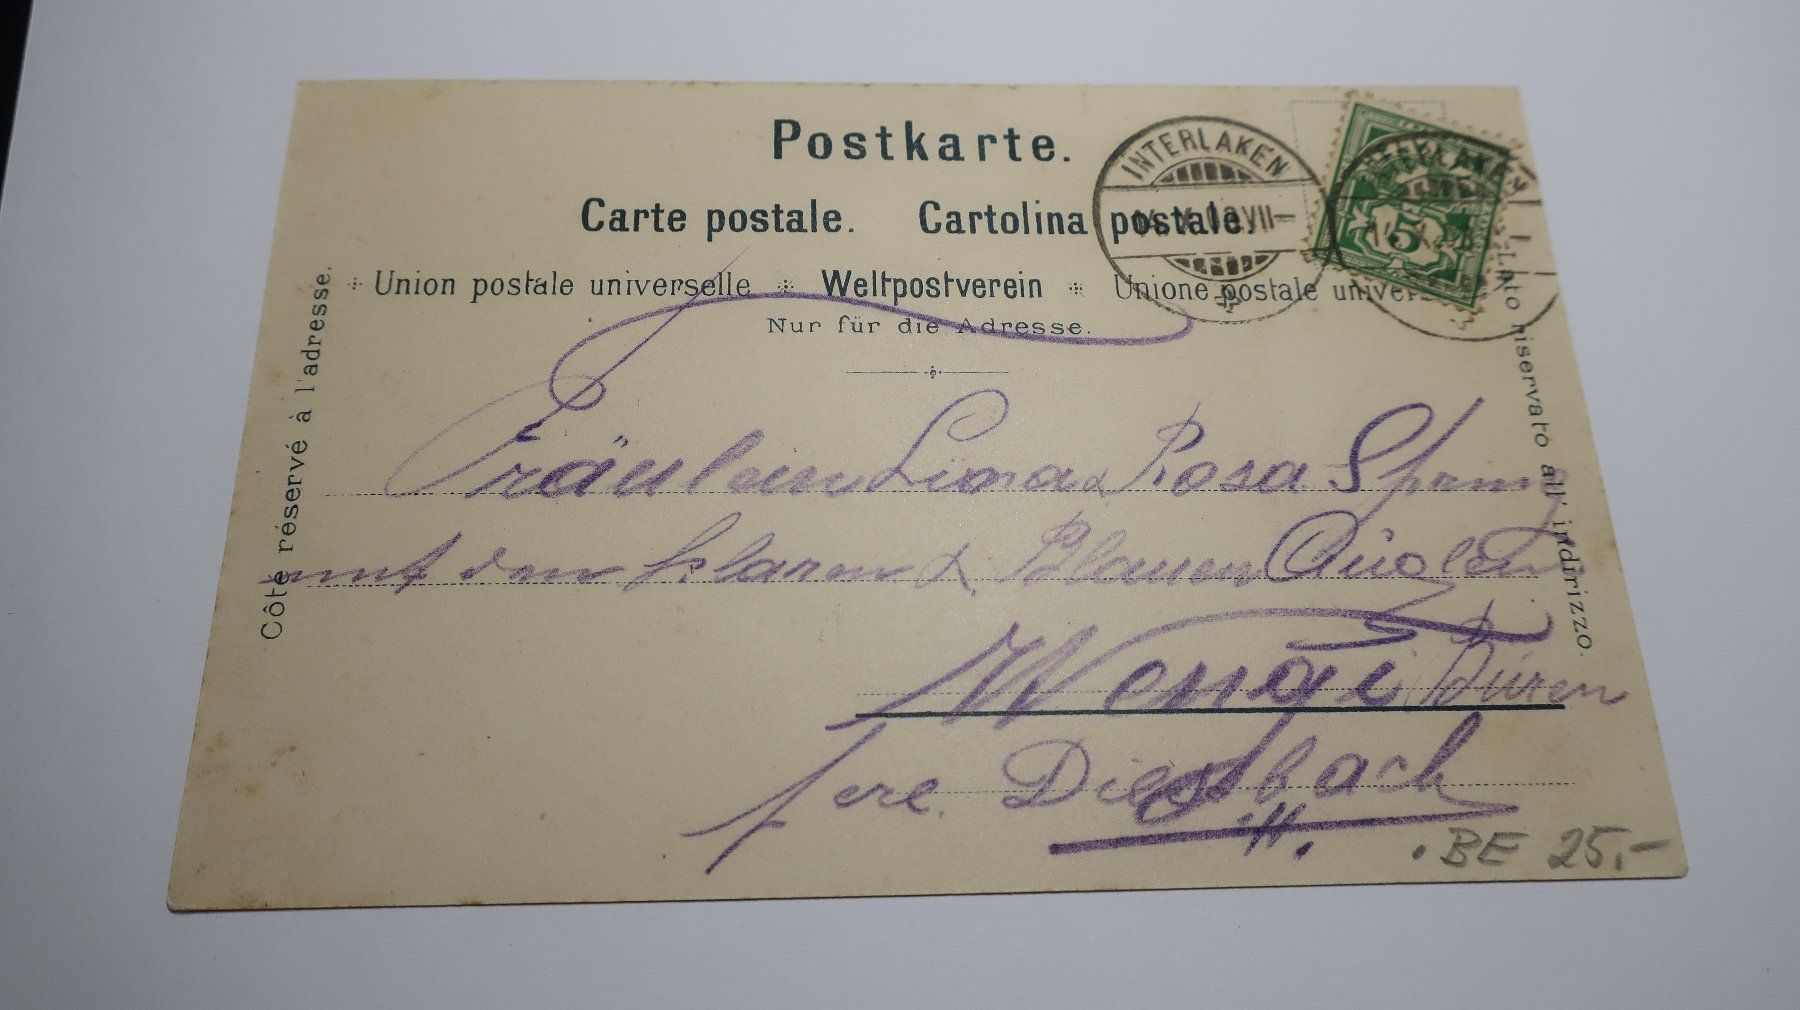 Postkarte.
Carte postale. Cartolina postale.
Union postale universelle Weltpostverein Unione postale univers
Nur für die Adresse.
Côté réservé à l'adresse.
Lato riservato all'indirizzo.
INTERLAKEN
VII
INTERLAKEN
5
Fräulein Lina & Rosa
mit den klaren & Blauen
Wengi Büren
Diessbach
BE 25.-